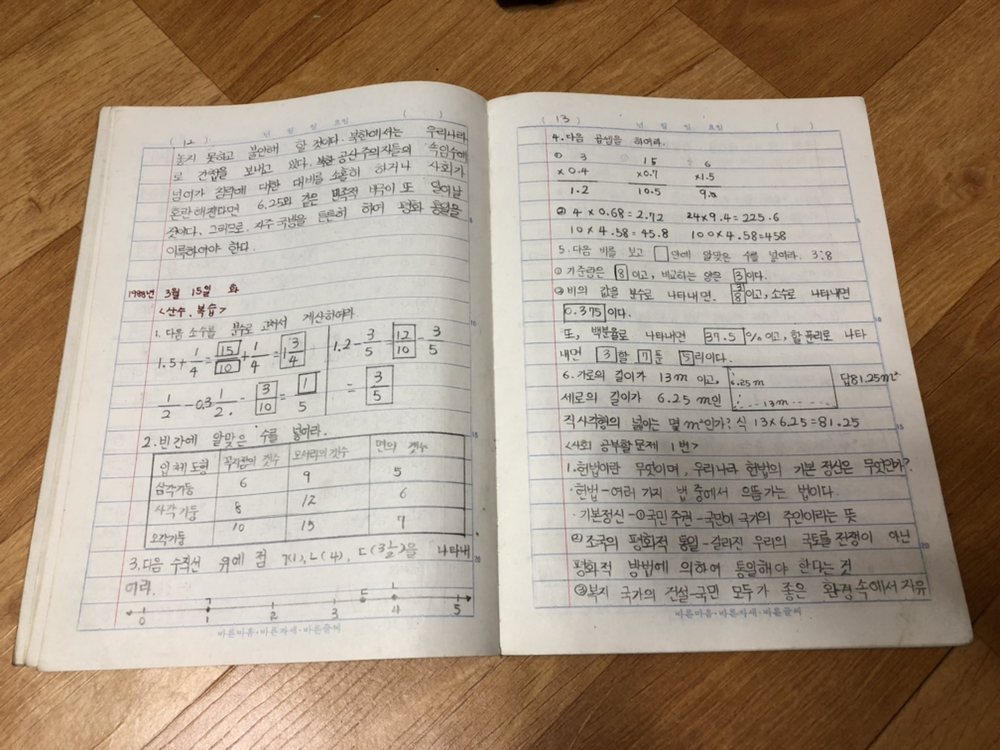 ( 12 ) 년 월 일 요일 ( )
놓지 못하고 불안해 할 것이다. 북한에서는 우리나라
로 간첩을 보내고 있다. 북한 공산주의자들의 속임수에
넘어가 침략에 대한 대비를 소홀히 하거나 사회가
혼란해진다면 6.25와 같은 민족적 비극이 또 일어날
것이다. 그러므로, 자주 국방을 튼튼히 하여 평화 통일을
이룩하여야 한다.
1988년 3월 15일 화
<산수. 복습>
1. 다음 소수를 분수로 고쳐서 계산하여라
1.5+1/4=15/10+1/4=1 3/4
1.2-3/5=12/10-3/5
=3/5
1/2-0.3 1/2-3/10=1/5
2. 빈칸에 알맞은 수를 넣어라.
입체도형 꼭지점의 갯수 모서리의 갯수 면의 갯수
삼각기둥 6 9 5
사각기둥 8 12 6
오각기둥 10 15 7
3. 다음 수직선 위에 점 ㄱ(1), ㄴ(4), ㄷ(3 1/2)을 나타내
어라.
ㄱ ㄷ ㄴ
0 1 2 3 4 5
바른마음·바른자세·바른글씨
( 13 ) 년 월 일 요일 ( )
4. 다음 곱셈을 하여라.
① 3 15 6
×0.4 ×0.7 ×1.5
1.2 10.5 9.0
② 4×0.68=2.72 24×9.4=225.6
10×4.58=45.8 100×4.58=458
5. 다음 비를 보고 □안에 알맞은 수를 넣어라. 3:8
① 기준량은 8이고, 비교하는 양은 3이다.
② 비의 값을 분수로 나타내면. 3/8이고, 소수로 나타내면
0.375이다.
또, 백분율로 나타내면 37.5%이고, 할 푼리로 나타
내면 3할 7푼 5리이다.
6. 가로의 길이가 13m 이고,
세로의 길이가 6.25m인
6.25m
13m
답81.25m²
직사각형의 넓이는 몇 m²인가? 식 13×6.25=81.25
<사회 공부할문제 1번>
1. 헌법이란 무엇이며, 우리나라 헌법의 기본 정신은 무엇인가?
·헌법-여러 가지 법 중에서 으뜸가는 법이다.
·기본정신-①국민주권-국민이 국가의 주인이라는 뜻
②조국의 평화적 통일-갈라진 우리의 국토를 전쟁이 아닌
평화적 방법에 의하여 통일해야 한다는 것
③복지 국가의 건설-국민 모두가 좋은 환경 속에서 자유
바른마음·바른자세·바른글씨